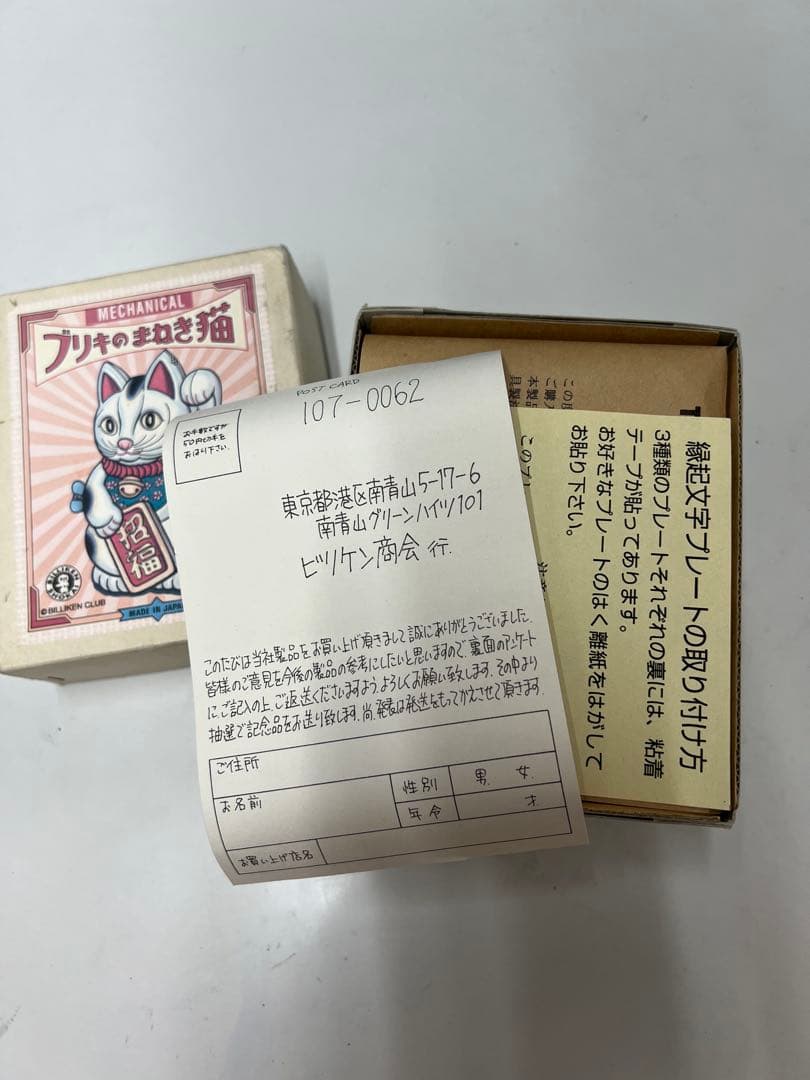 MECHANICAL
ブリキのまねき猫
招福
BILLIKEN
SHOKAI
©BILLIKEN CLUB
MADE IN JAPAN
POST CARD
107-0062
お手数ですが
50円切手を
おはり下さい.
東京都港区南青山5-17-6
南青山グリーンハイツ101
ビリケン商会 行.
このたびは当社製品をお買い上げ頂きまして誠にありがとうございました.
皆様のご意見を今後の製品の参考にしたいと思いますので、裏面のアンケート
に、ご記入の上、ご返送くださいますよう、よろしくお願い致します. その中より
抽選で記念品をお送り致します. 尚、発表は発送をもってかえさせて頂きます.
ご住所
お名前
性別
男. 女.
年令
才
お買い上げ店名
縁起文字プレートの取り付け方
3種類のプレートそれぞれの裏には、粘着
テープが貼ってあります。
お好きなプレートのはく離紙をはがして
お貼り下さい。